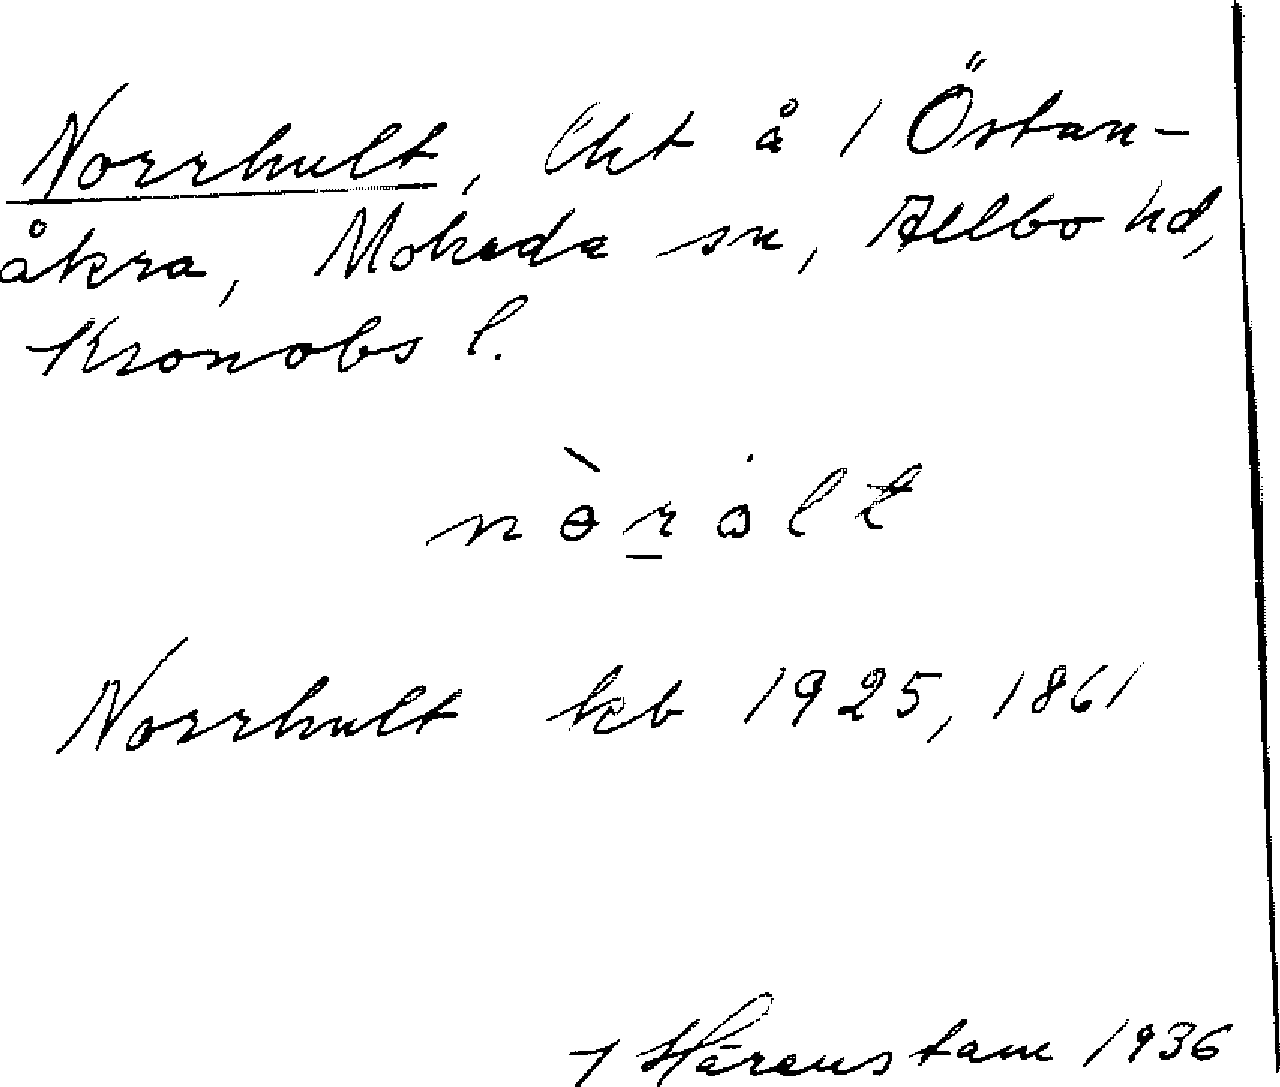 Norrhult, lht å 1 Östan-
åkra, Moheda sn, Allbo hd,
Kronobs l.
nòrålt
Norrhult kb 1925, 1861
Härenstam 1936